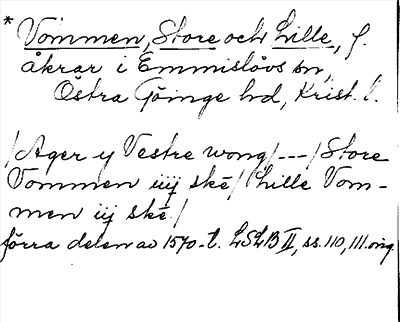 * Vommen, Store och Lille, f.
åkrar i Emmislövs sn,
Östra Göinge hd, Krist. l.
/Ager y Vestre wong/---/Store
Vommen iiij skē/Lille Vom-
men iij skē./
förra delen av 1570-t. LSLB II, ss. 110, 111. orig.